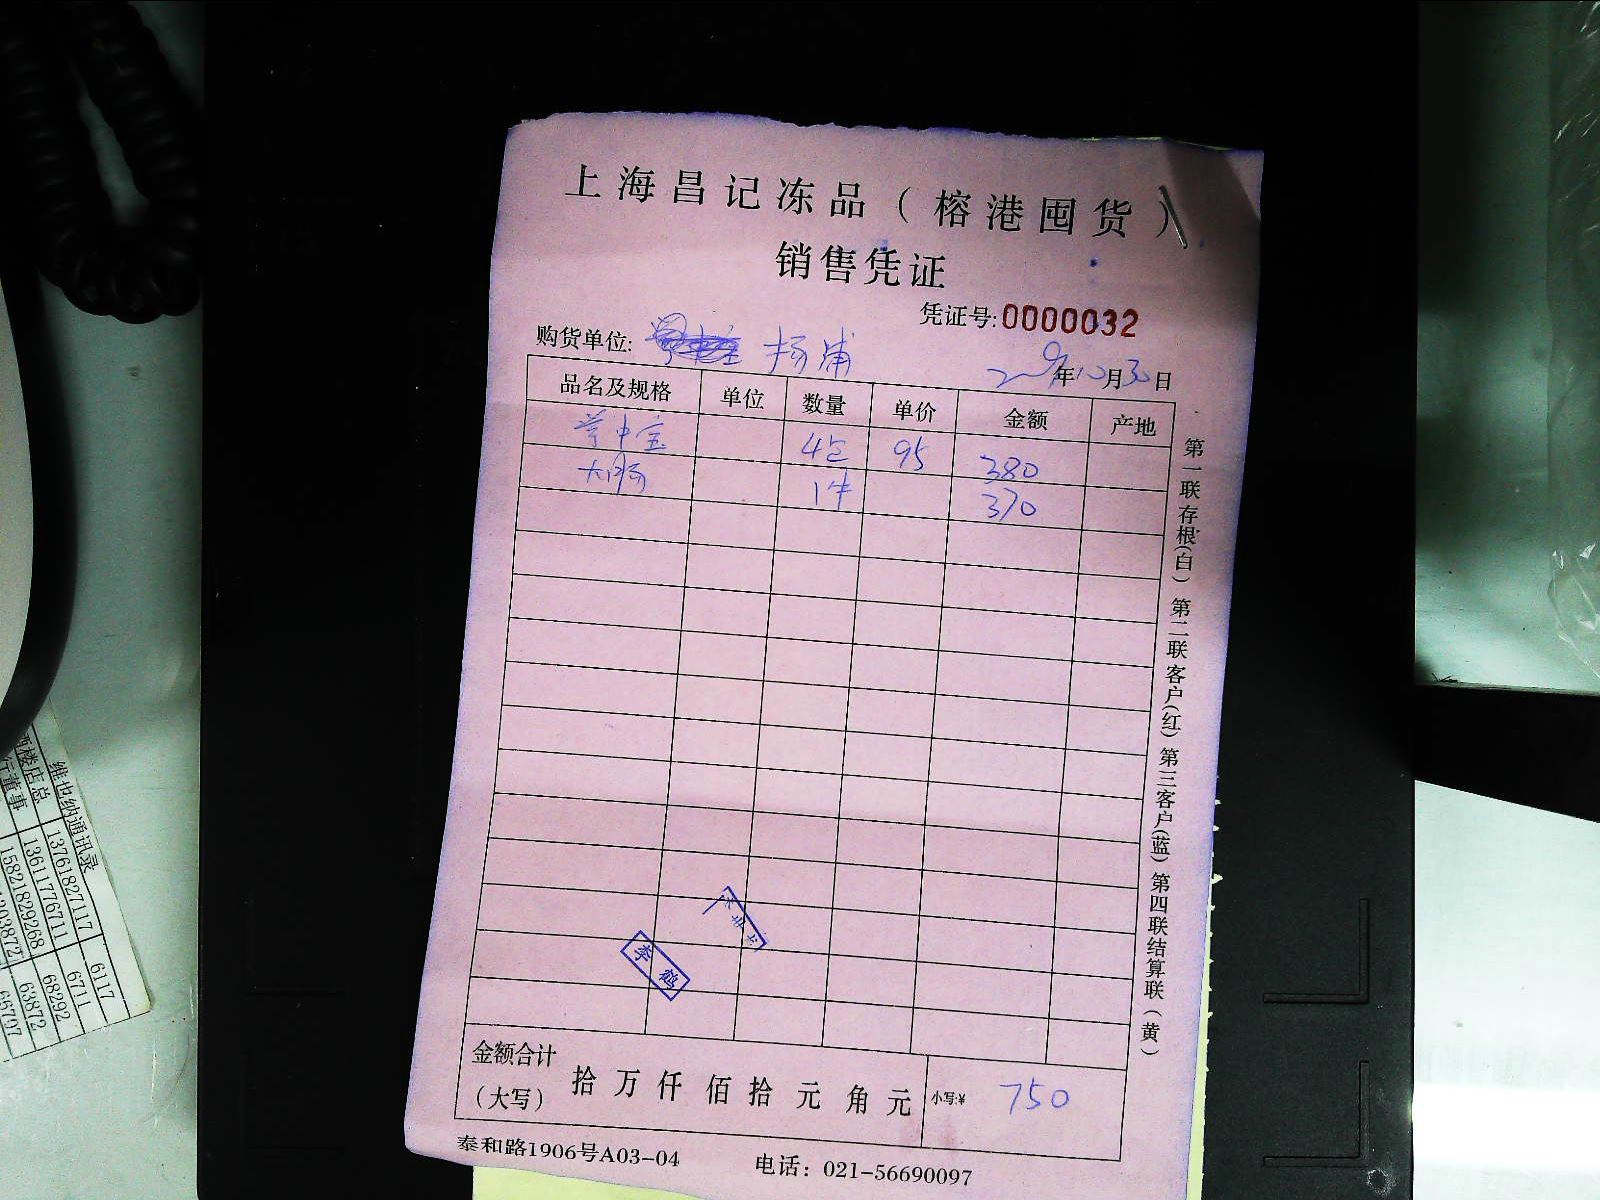 上海昌记冻品（榕港囤货）
销售凭证
凭证号:0000032
购货单位: 杨浦
年10月30日
品名及规格 单位 数量 单价 金额 产地
掌中宝 4包 95 380
大肠 1件 370
金额合计（大写） 拾 万 仟 佰 拾 元 角 元 小写:¥ 750
泰和路1906号A03-04 电话：021-56690097
第一联存根(白) 第二联客户(红) 第三客户(蓝) 第四联结算联(黄)
李鹤
维也纳通讯录
酒楼店总 13761827117 6117
行董事 13611776711 6711
15821829268 68292
63872